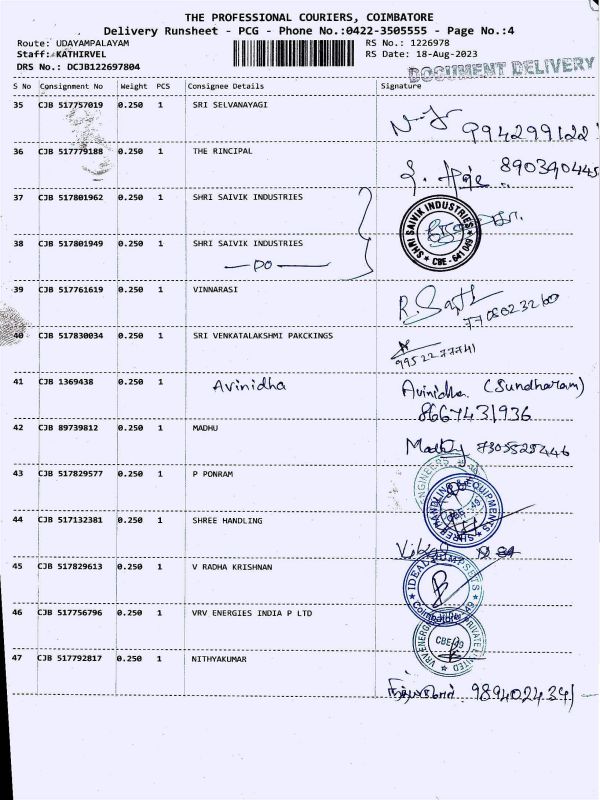 THE PROFESSIONAL COURIERS, COIMBATORE
Delivery Runsheet - PCG - Phone No.:0422-3505555 - Page No.:4
Route: UDAYAMPALAYAM RS No.: 1226978
Staff: KATHIRVEL RS Date: 18-Aug-2023
DRS No.: DCJB122697804 DOCUMENT DELIVERY
S No Consignment No Weight PCS Consignee Details Signature
35 CJB 517757019 0.250 1 SRI SELVANAYAGI
36 CJB 517779188 0.250 1 THE RINCIPAL
890340445
37 CJB 517801962 0.250 1 SHRI SAIVIK INDUSTRIES
SHRI SAIVIK INDUSTRIES
CBE - 641 049
38 CJB 517801949 0.250 1 SHRI SAIVIK INDUSTRIES
DO
39 CJB 517761619 0.250 1 VINNARASI
40 CJB 517830034 0.250 1 SRI VENKATALAKSHMI PAKCKINGS
9952277741
41 CJB 1369438 0.250 1 Avinidha Avinidha (Sundharam)
8667431936
42 CJB 89739812 0.250 1 MADHU
7305525446
43 CJB 517829577 0.250 1 P PONRAM
ENGINEERS
44 CJB 517132381 0.250 1 SHREE HANDLING
SHREE HANDLING & EQUIPMENTS
CBE - 49
45 CJB 517829613 0.250 1 V RADHA KRISHNAN
IDEAL PUMPSETS
Coimbatore-49
46 CJB 517756796 0.250 1 VRV ENERGIES INDIA P LTD
CBE-49
47 CJB 517792817 0.250 1 NITHYAKUMAR